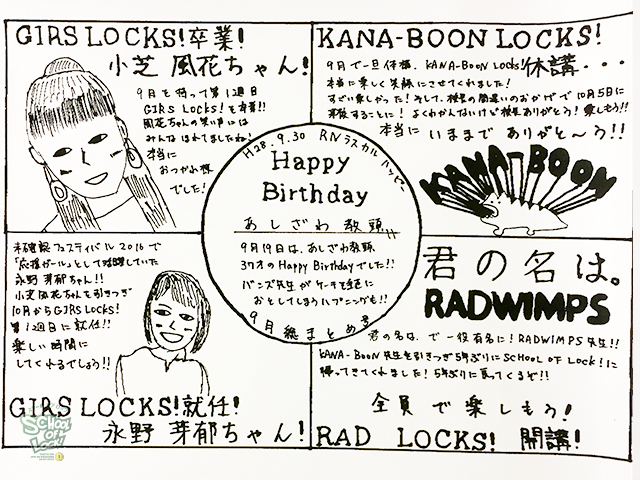 GIRS LOCKS!卒業!
小芝 風花ちゃん!
9月を持って第1週目
GIRS LOCKS!を卒業!!
風花ちゃんの笑い声には
みんなほれてましたね!
本当に
おつかれ様
でした!
KANA-BOON LOCKS!
休講・・・
9月で一旦休講、KANA-BOON Locks!
本当に楽しく笑顔にさせてくれました!
すごい楽しかった!そして、校長の間違いのおかげで10月5日に
よくわかんないけど校長ありがとう!楽しもう!!
本当に いままで ありがと〜う!!
KANA-BOON
H28.9.30 RN ラスカルハッピー
Happy
Birthday
あしざわ教頭!!
9月19日は、あしざわ教頭
37才のHappy Birthdayでした!!
バンズ先生がケーキを
おとしてしまうハプニングも!!
9月総まとめ号
未確認フェスティバル2016で
「応援ガール」として活躍していた
永野芽郁ちゃん!!
小芝風花ちゃんを引きつぎ
10月からGIRS LOCKS!
第1週目に就任!!
楽しい時間に
してくれるでしょう!!
GIRS LOCKS!就任!
永野 芽郁ちゃん!
君の名は。
RADWIMPS
君の名は、で一役有名に!RADWIMPS先生!!
KANA-BOON先生を引きつぎ5年ぶりにSCHOOL OF Lock!に
帰ってきてくれました!5年ぶりに戻ってくるぞ!!
全員で楽しもう!
RAD LOCKS! 開講!
SCHOOL
OF
LOCK!